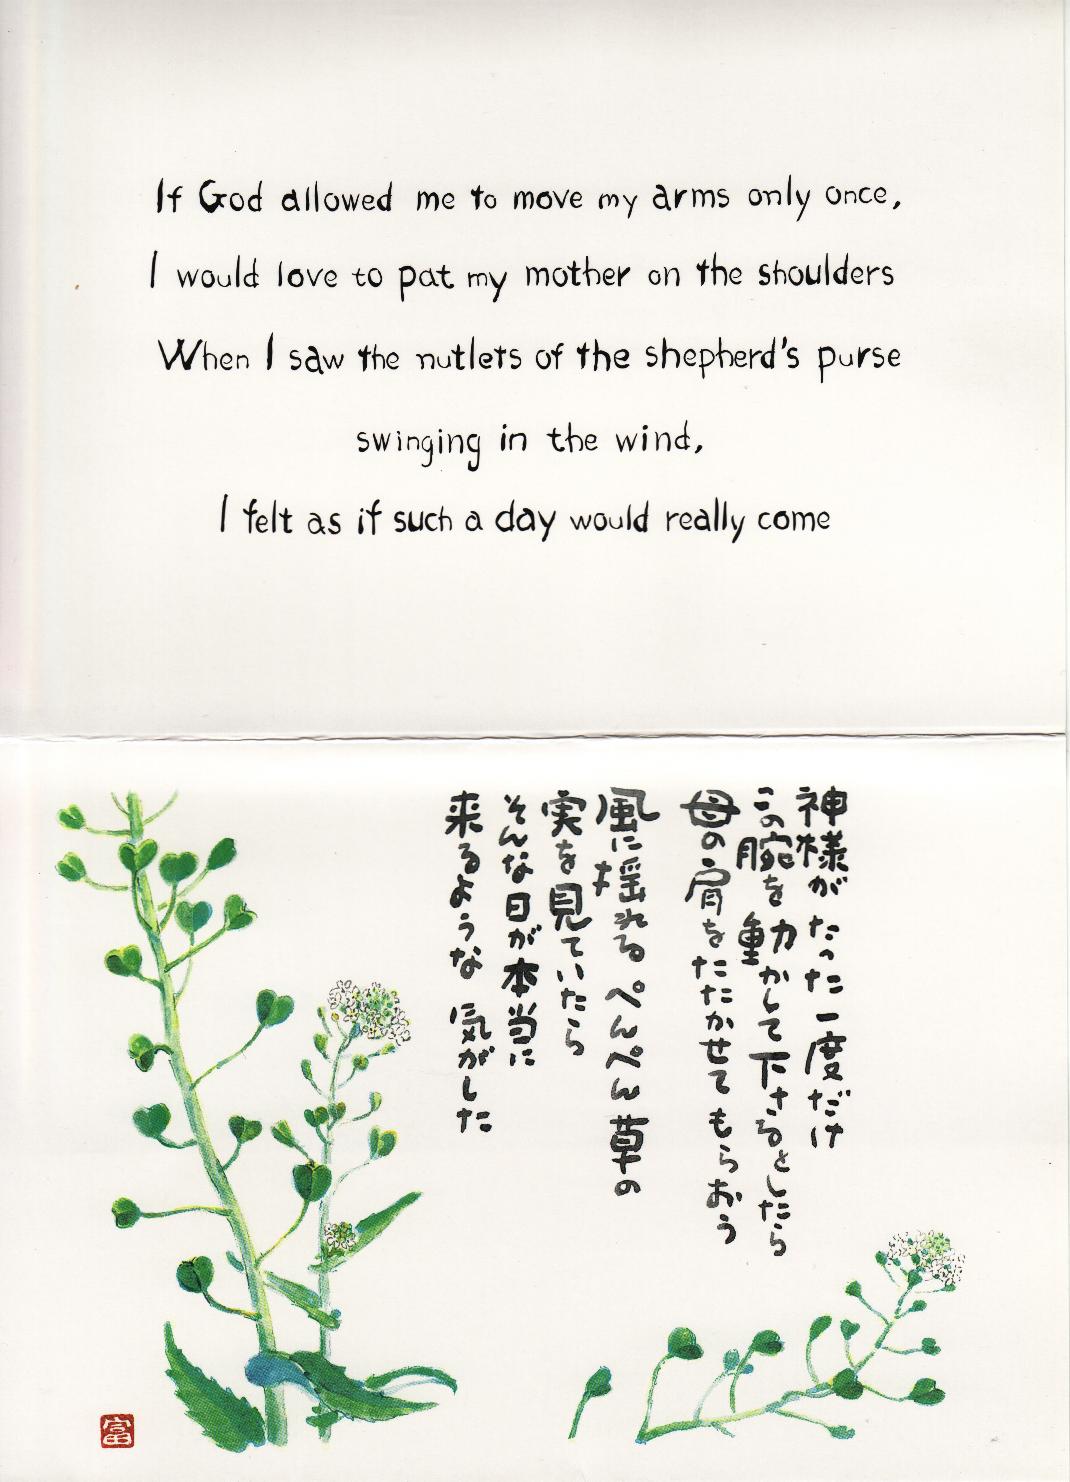 If God allowed me to move my arms only once,
I would love to pat my mother on the shoulders
When I saw the nutlets of the shepherd's purse
swinging in the wind,
I felt as if such a day would really come
神様がたった一度だけ
この腕を動かして下さるとしたら
母の肩をたたかせてもらおう
風に揺れるぺんぺん草の
実を見ていたら
そんな日が本当に
来るような気がした
富